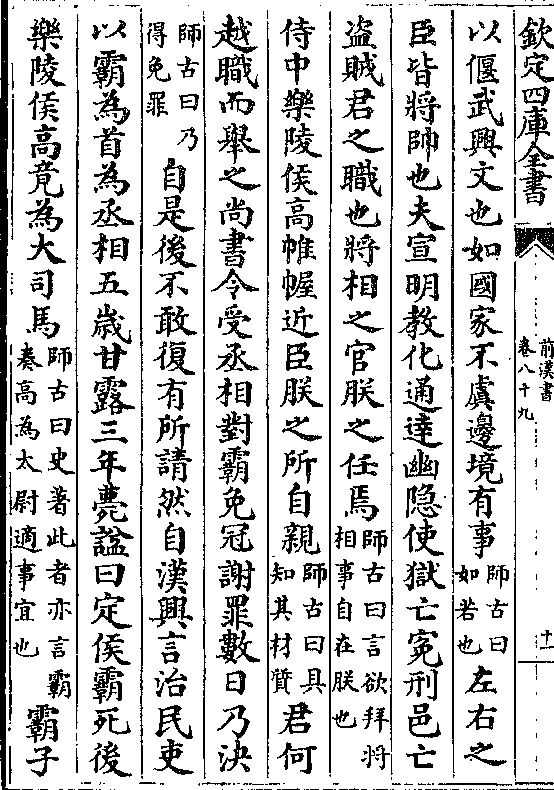 欽定四庫全書
前漢書
卷八十九
十一
以偃武興文也如國家不虞邊境有事師古曰如若也左右之
臣皆將帥也夫宣明教化通達幽隐使獄亡冤刑邑亡
盜賊君之職也將相之官朕之任焉師古曰言欲拜將相事自在朕也
侍中樂陵侯高帷幄近臣朕之所自親師古曰具知其材質君何
越職而舉之尚書令受丞相對霸免冠謝罪數日乃決
師古曰乃得免罪自是後不敢復有所請然自漢興言治民吏
以霸為首為丞相五歲甘露三年薨諡曰定侯霸死後
樂陵侯高竟為大司馬師古曰史著此者亦言霸奏高為太尉適事宜也霸子